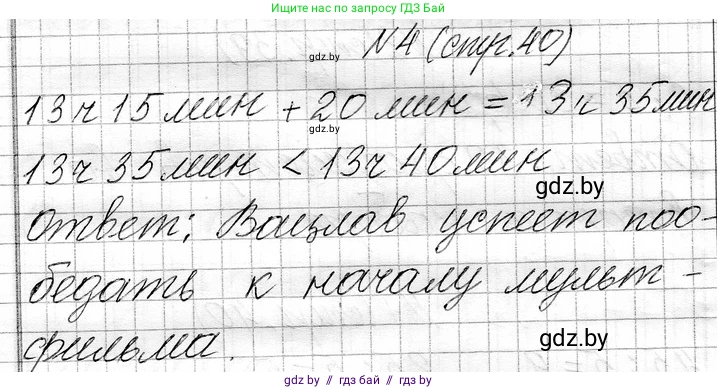 Ищите нас по запросу ГДЗ БАЙ
N4 (стр.40)
gdz.by
13ч 15мин + 20 мин = 13ч 35мин
gdz.by
13ч 35мин < 13ч 40мин
gdz.by
Ответ: Вацлав успеет поо-
бедать к началу мульт-
фильма.
gdz.by
gdz.by // гдз бай // gdz.by